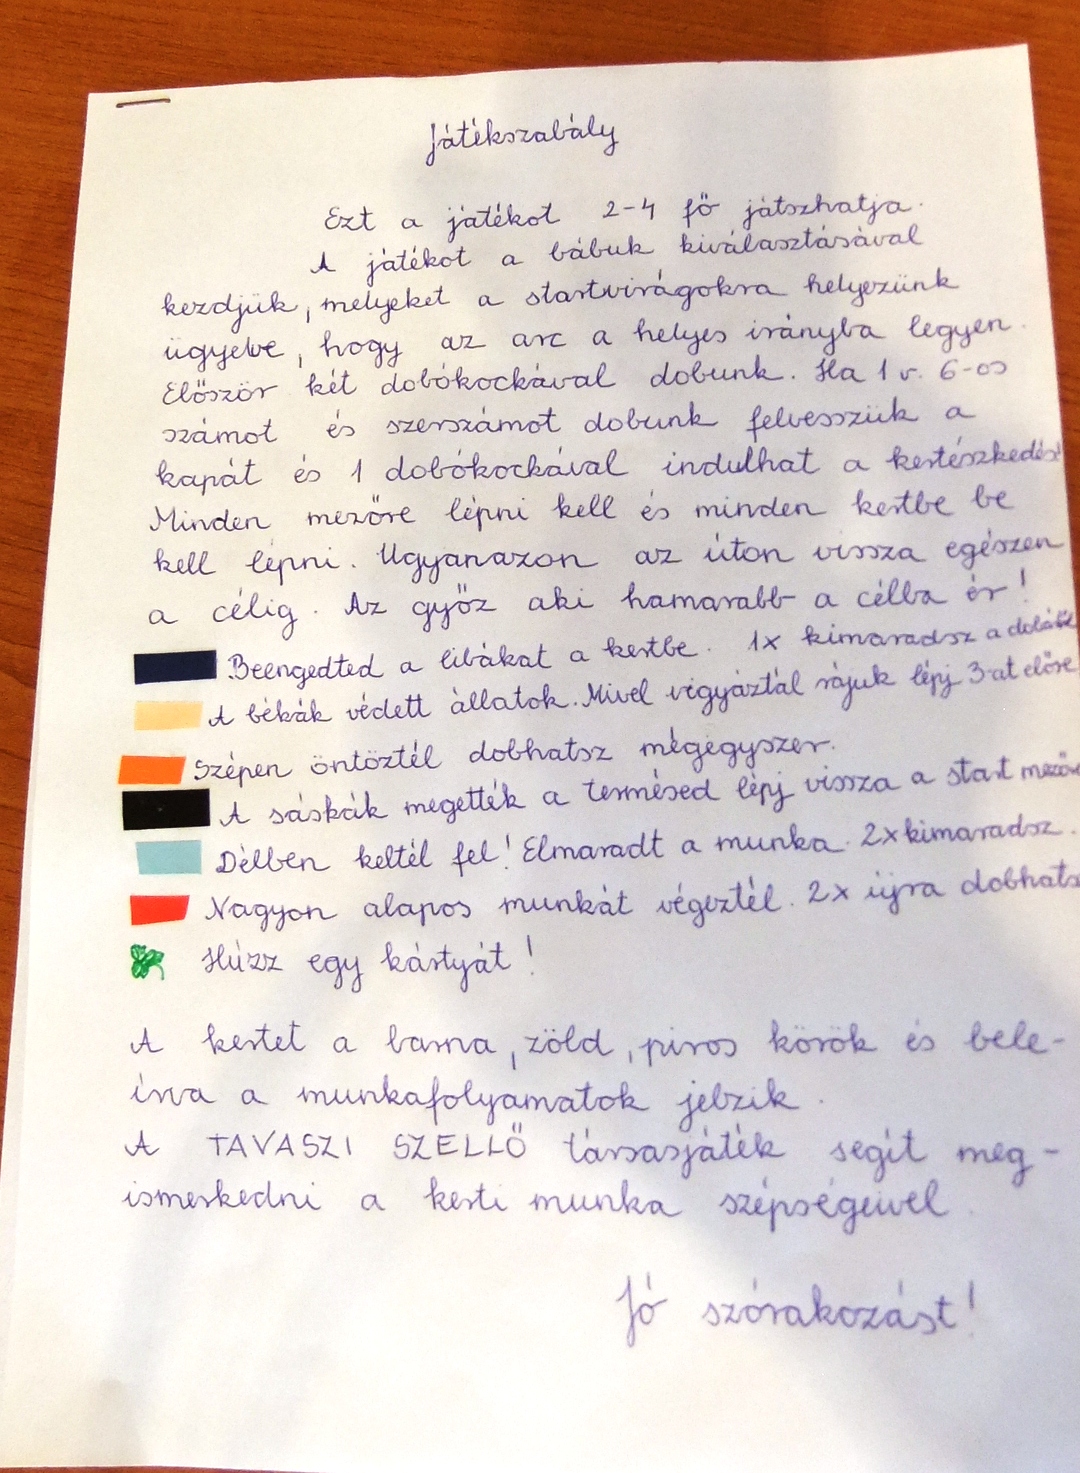 Játékszabály
Ezt a játékot 2-4 fő játszhatja.
A játékot a bábuk kiválasztásával
kezdjük, melyeket a startvirágokra helyezünk
ügyelve, hogy az arc a helyes irányba legyen.
Először két dobókockával dobunk. Ha 1 v. 6-os
számot és szerszámot dobunk felvesszük a
kapát és 1 dobókockával indulhat a kertészkedés!
Minden mezőre lépni kell és minden kertbe be
kell lépni. Ugyanazon az úton vissza egészen
a célig. Az győz aki hamarabb a célba ér!
Beengedted a libákat a kertbe. 1x kimaradsz a
A békák védett állatok. Mivel vigyáztál rájuk lépj 3-at előre
Szépen öntöztél dobhatsz mégegyszer.
A sáskák megették a termésed lépj vissza a start
Délben keltél fel! Elmaradt a munka. 2x kimaradsz.
Nagyon alapos munkát végeztél. 2x újra dobhats
Húzz egy kártyát!
A kertet a barna, zöld, piros körök és bele-
írva a munkafolyamatok jelzik.
A TAVASZI SZELLŐ társasjáték segít meg-
ismerkedni a kerti munka szépségeivel.
Jó szórakozást!